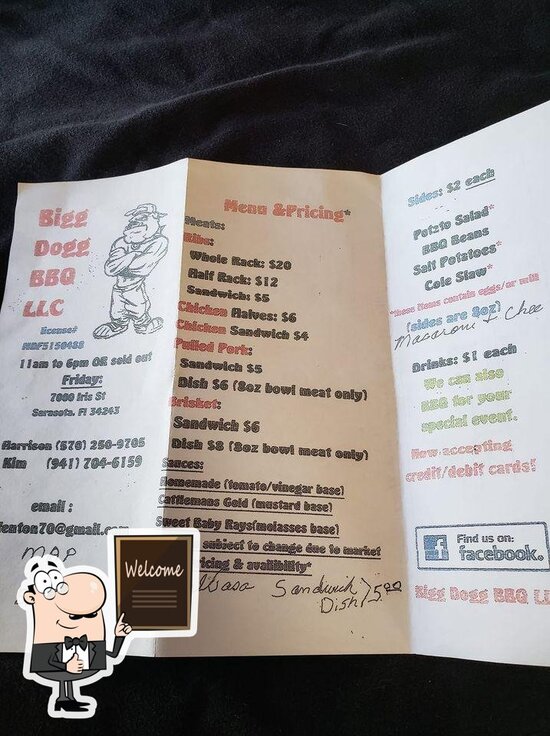 Bigg
Dogg
BBQ
LLC
license#
11am to 6pm OR sold out
Friday:
7000 Iris St
Sarasota, Fl 34243
Harrison (570) 250-9705
Kim (941) 704-6159
email :
fenton70@gmail.com
MAP
Welcome
Menu &Pricing*
Meats:
Ribs:
Whole Rack: $20
Half Rack: $12
Sandwich: $5
Chicken Halves: $6
Chicken Sandwich $4
Pulled Pork:
Sandwich $5
Dish $6 (8oz bowl meat only)
Brisket:
Sandwich $6
Dish $8 (8oz bowl meat only)
Sauces:
Homemade (tomato/vinegar base)
Cattlemans Gold (mustard base)
Sweet Baby Rays(molasses base)
subject to change due to market
pricing & availibility*
Sandwich
Dish
Sides: $2 each
Potzto Salad*
BBQ Beans
Salt Potatoes*
Cole Slaw*
*these items contain eggs/or milk
(sides are 8oz)
Macaroni & Chee
Drinks: $1 each
We can also
BBQ for your
special event.
Now accepting
credit/debit cards!
Find us on:
facebook.
Bigg Dogg BBQ LL